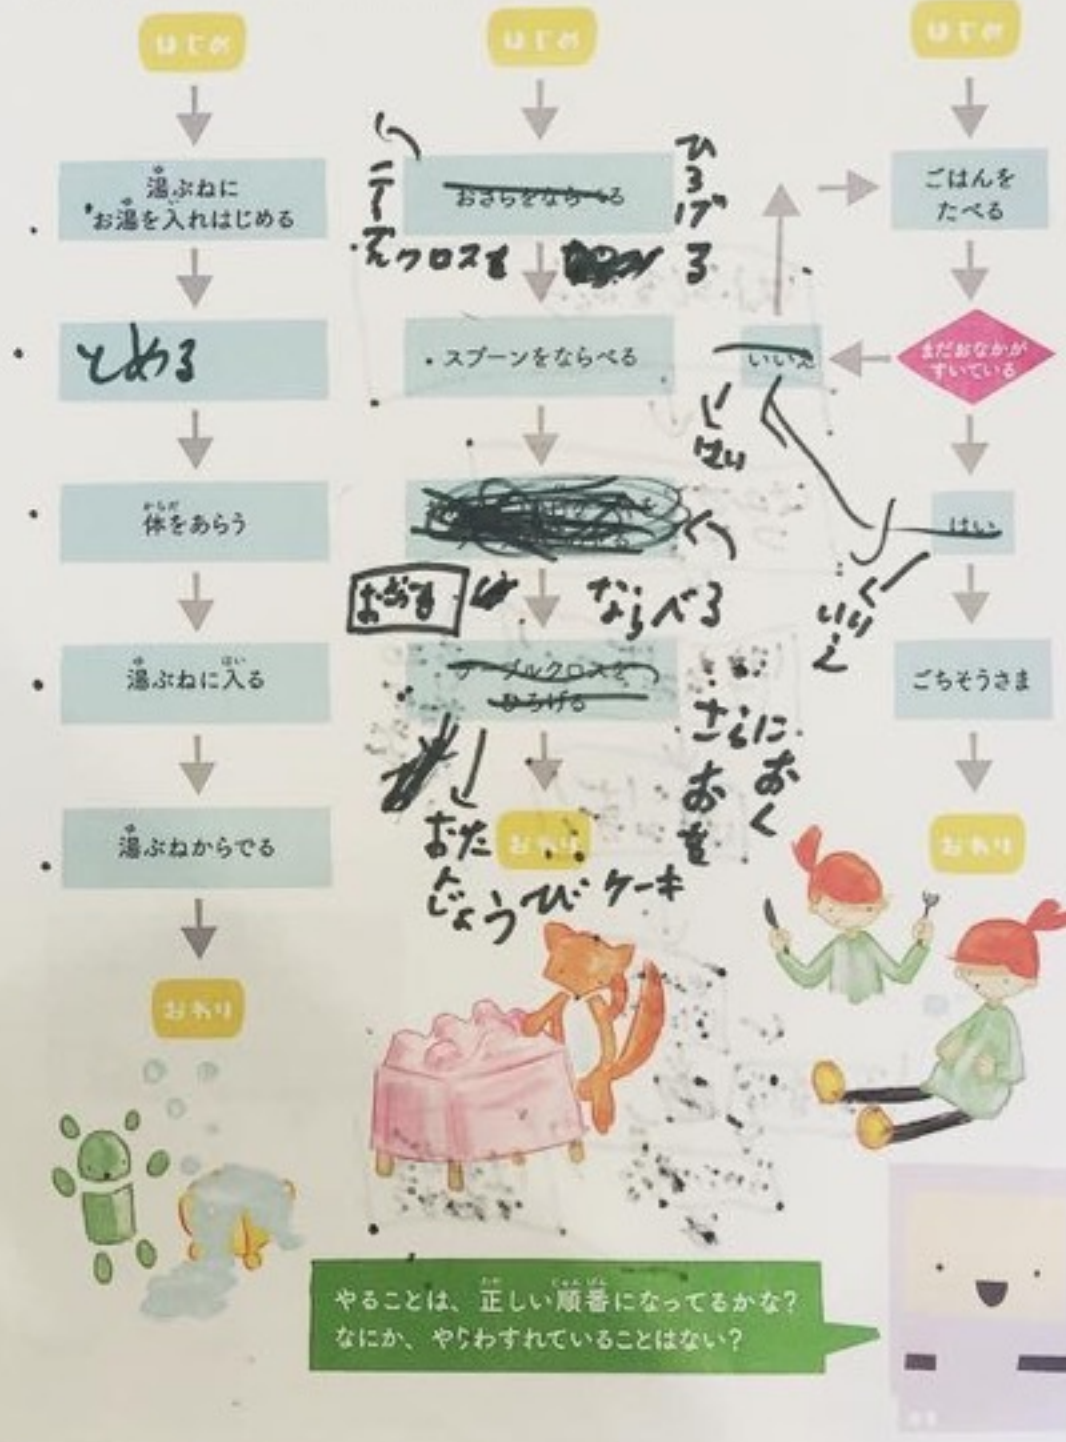 はじめ
湯ぶねに
お湯を入れはじめる
とめる
体をあらう
湯ぶねに入る
湯ぶねからでる
おわり
はじめ
おさらをならべる
テーブル
クロスを
ひろげる
スプーンをならべる
おさらを
ならべる
テーブルクロスを
ひろげる
おたんじょうび ケーキ
を
おさらに
おく
おわり
はじめ
ごはんを
たべる
まだおなかが
すいている
いいえ
はい
はい
いいえ
ごちそうさま
おわり
やることは、正しい順番になってるかな?
なにか、やりわすれていることはない?